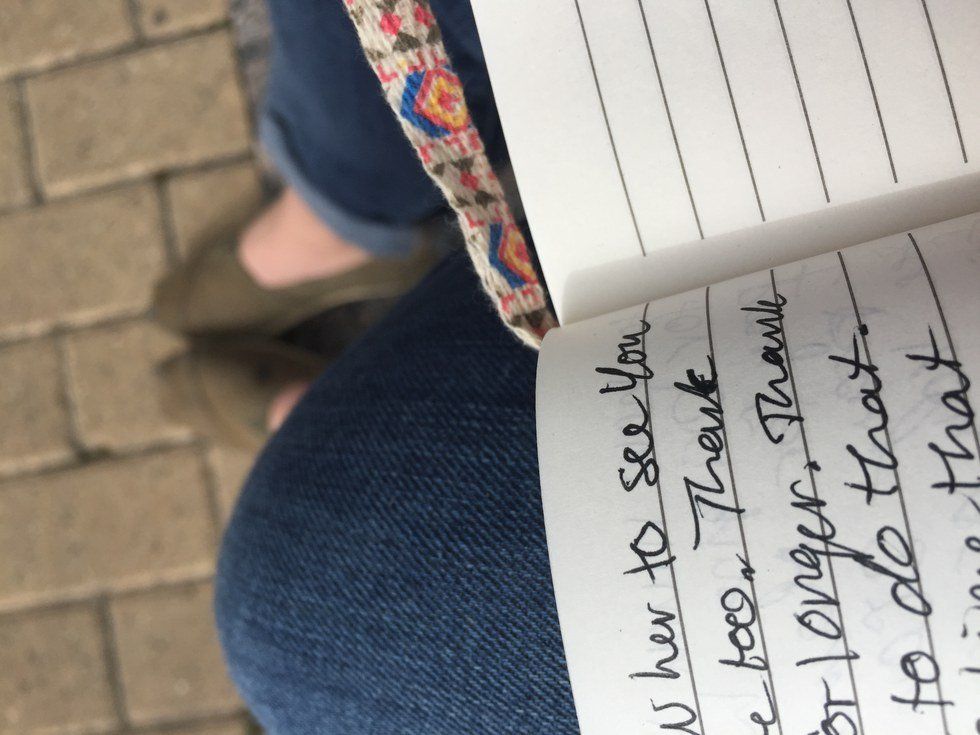 her to see You
too. Thank
for longer. Thank
to do that.
that